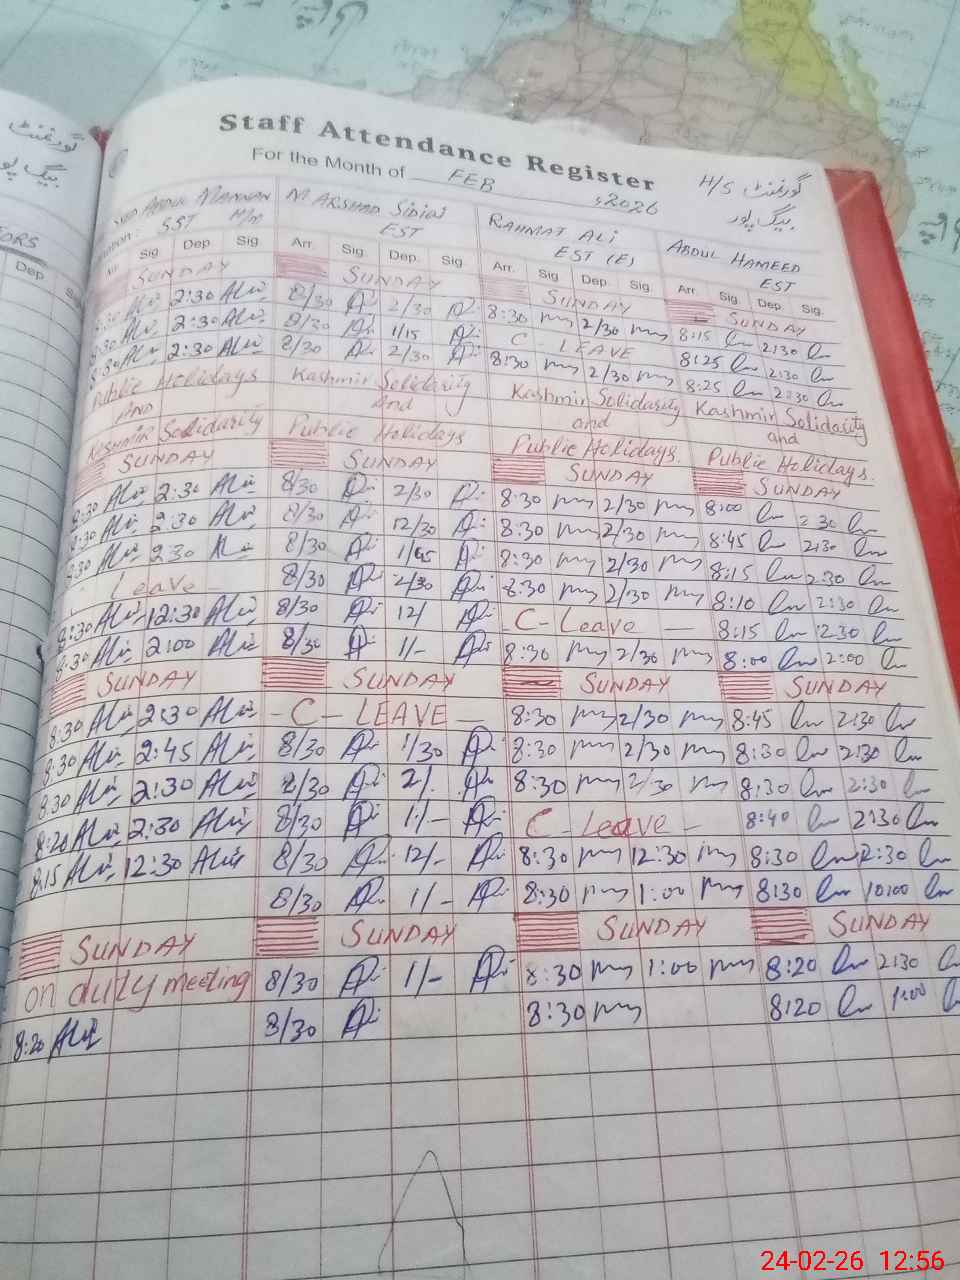 گورنمنٹ
بیگ پور
Staff Attendance Register
For the Month of FEB 2026
H/S گورنمنٹ
بیگ پور
ABDUL MANNAN M ARSHAD SIDIQI RAHMAT ALI ABDUL HAMEED
SST H/M EST EST (E) EST
Dep
Arr. Sig Dep. Sig Arr. Sig Dep. Sig Arr. Sig Dep. Sig. Arr. Sig. Dep. Sig.
SUNDAY SUNDAY SUNDAY SUNDAY
8:30 2:30 8/30 2/30 8:30 2/30 8:15 2:30
8:30 2:30 8/30 1/15 C - LEAVE 8:25 2:30
8:30 2:30 8/30 2/30 8:30 2/30 8:25 2:30
Public Holidays Kashmir Solidarity Kashmir Solidarity Kashmir Solidarity
AND And and and
Kashmir Solidarity Public Holidays Public Holidays Public Holidays.
SUNDAY SUNDAY SUNDAY SUNDAY
8:30 2:30 8/30 2/30 8:30 2/30 8:00 2:30
8:30 2:30 8/30 12/30 8:30 2/30 8:45 2:30
8:30 2:30 8/30 1/45 8:30 2/30 8:15 2:30
Leave 8/30 2/30 8:30 2/30 8:10 2:30
8:30 12:30 8/30 12/ C-Leave 8:15 2:30
8:30 2:00 8/30 1/- 8:30 2/30 8:00 2:00
SUNDAY SUNDAY SUNDAY SUNDAY
8:30 2:30 - C - LEAVE - 8:30 2/30 8:45 2:30
8:30 2:45 8/30 1/30 8:30 2/30 8:30 2:30
8:30 2:30 8/30 2/. 8:30 2/30 8:30 2:30
8:20 2:30 8/30 1/- C-Leave - 8:40 2:30
8:15 12:30 8/30 12/- 8:30 12:30 8:30 2:30
8/30 1/- 8:30 1:00 8:30 10:00
SUNDAY SUNDAY SUNDAY SUNDAY
on duty meeting 8/30 1/- 8:30 1:00 8:20 2:30
8:20 8/30 8:30 8:20 1:00
24-02-26 12:56